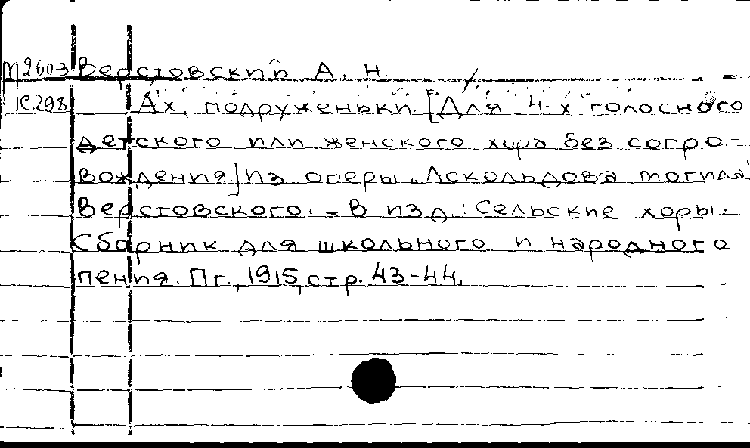 М2603 Верстовский А. Н.
К298 Ах, подруженьки [Для 4-х голосного
детского или женского хора без сопро-
вождения] из оперы „Аскольдова могила"
Верстовского. – В изд.: Сельские хоры.
Сборник для школьного и народного
пения. Пг., 1915, стр. 43-44.